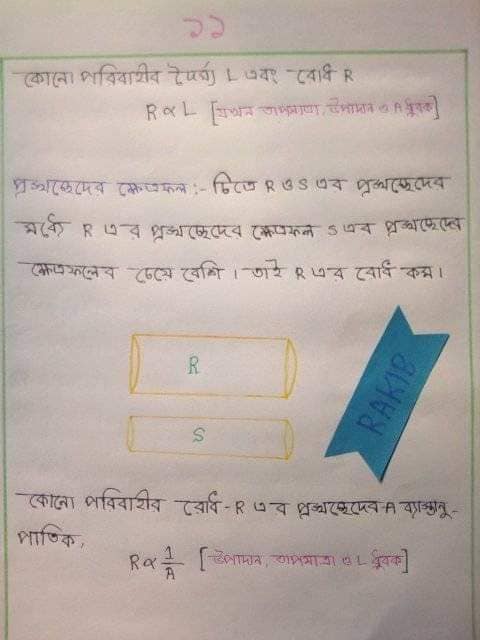 ১১
কোনো পরিবাহীর দৈর্ঘ্য L এবং রোধ R
R ∝ L [যখন তাপমাত্রা, উপাদান ও A ধ্রুবক]
প্রস্থচ্ছেদের ক্ষেত্রফল :- চিত্রে R ও S এর প্রস্থচ্ছেদের
মধ্যে R এর প্রস্থচ্ছেদের ক্ষেত্রফল S এর প্রস্থচ্ছেদের
ক্ষেত্রফলের চেয়ে বেশি । তাই R এর রোধ কম ।
R
RAKIB
S
কোনো পরিবাহীর রোধ - R এর প্রস্থচ্ছেদের A ব্যাস্তানু-
পাতিক,
R ∝ 1/A [উপাদান, তাপমাত্রা ও L ধ্রুবক]